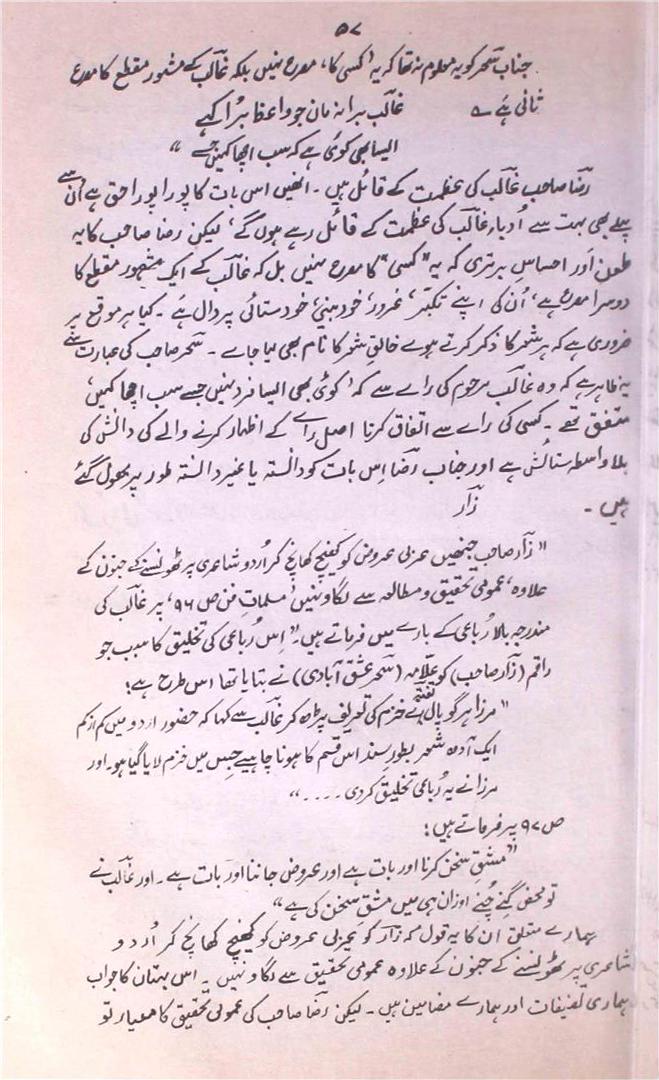 ۵۷
جناب سحر کو یہ معلوم نہ تھا کہ یہ 'کسی کا، مصرع نہیں بلکہ غالب کے مشہور مقطع کا مصرع
ثانی ہَے ؎
غالب برا نہ مان جو واعظ بُرا کہے
ایسا بھی کوئی ہے کہ سب اچھا کہیں جسے "
رضا صاحب غالب کی عظمت کے قائل ہیں ۔ انھیں اس بات کا پورا پورا حق ہے اُن سے
پہلے بھی بہت سے اُدباء غالب کی عظمت کے قائل رہے ہوں گے، لیکن رضا صاحب کا یہ
طعن اَور احساس برتری کہ یہ "کسی" کا مصرع نہیں بل کہ غالب کے ایک مشہور مقطع کا
دوسرا مصرع ہے، اُن کی اپنے تکبّر، غرور، خود بینی، خود ستائی پر دال ہَے ۔ کیا ہر موقع پر
ضروری ہے کہ ہر شعر کا ذکر کرتے ہوے خالقِ شعر کا نام بھی لیا جاے ۔ سحر صاحب کی عبارت سے
یہ ظاہر ہے کہ وہ غالب مرحوم کی راے سے کہ 'کوئی بھی ایسا فرد نہیں جسے سب اچھا کہیں'
متفق تھے ۔ کسی کی راے سے اتفاق کرنا اصل راے کے اظہار کرنے والے کی دانش کی
بلا واسطہ ستائش ہے اور جناب رضا اِس بات کو دانستہ یا غیر دانستہ طور پر بھول گئے
ہیں ۔ زآر
" زآر صاحب جنھیں عربی عروض کو کھینچ کھانچ کر اُردو شاعری پر ٹھونسنے کے جنون کے
علاوہ، عمومی تحقیق و مطالعہ سے لگاو نہیں 'مسلماتِ فن ص ۹۶، پر غالب کی
مندرجہ بالا رُباعی کے بارے میں فرماتے ہیں۔ " اِس رُباعی کی تخلیق کا سبب جو
راقم (زآر صاحب) کو علّامہ (سحر عشق آبادی) نے بتایا تھا اس طرح ہے؛
" مرزا ہرگوپال تفتہ نے خزم کی تعریف پڑھ کر غالب سے کہا کہ حضور اردو میں کم از کم
ایک آدھ شعر بطور سند اس قسم کا ہونا چاہیے جس میں خزم لایا گیا ہو۔ اور
مرزا نے یہ رُباعی تخلیق کر دی ۔۔۔۔ "
ص ۹۷ پر فرماتے ہیں؛
" مشقِ سخن کرنا اور بات ہے اور عروض جاننا اور بات ہے ۔ اور غالب نے
تو محض گِنے چُنے اوزان ہی میں مشق سخن کی ہے "
ہمارے متعلق ان کا یہ قول کہ زآر کو عربی عروض کو کھینچ کھانچ کر اُردو
شاعری پر ٹھونسنے کے جنون کے علاوہ عمومی تحقیق سے لگاو نہیں ، اس بہتان کا جواب
ہماری تصنیفات اور ہمارے مضامین ہیں ۔ لیکن رضا صاحب کی عمومی تحقیق کا معیار تو